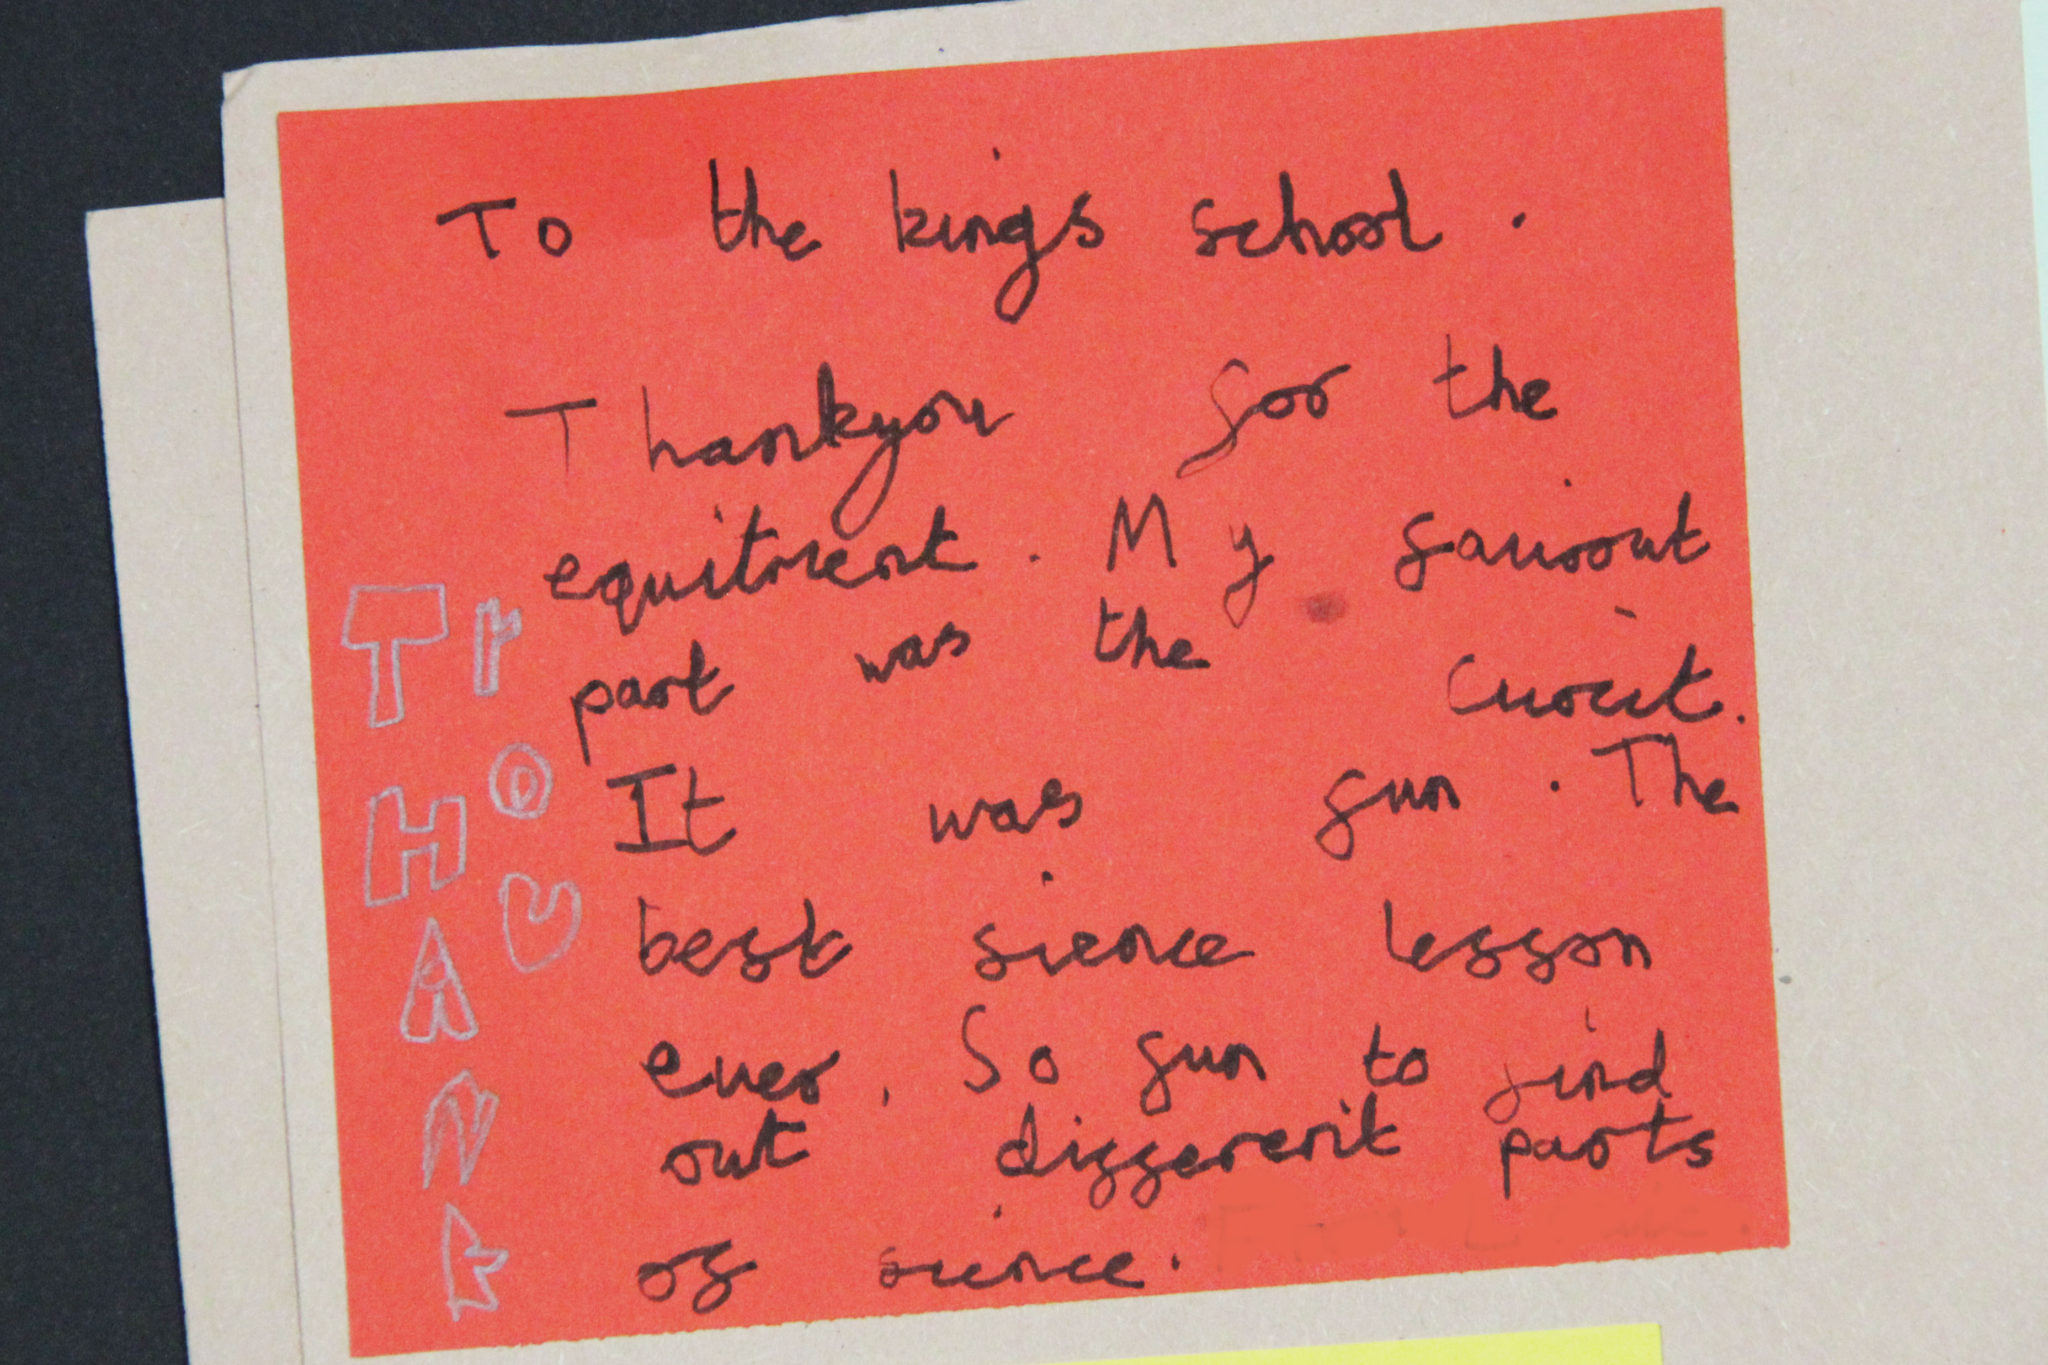 To the kings school.
Thankyou for the
equitment. My faviourt
part was the Curcit.
It was fun. The
best sience lesson
ever. So fun to find
out differerit parts
of science.
THANK
YOU